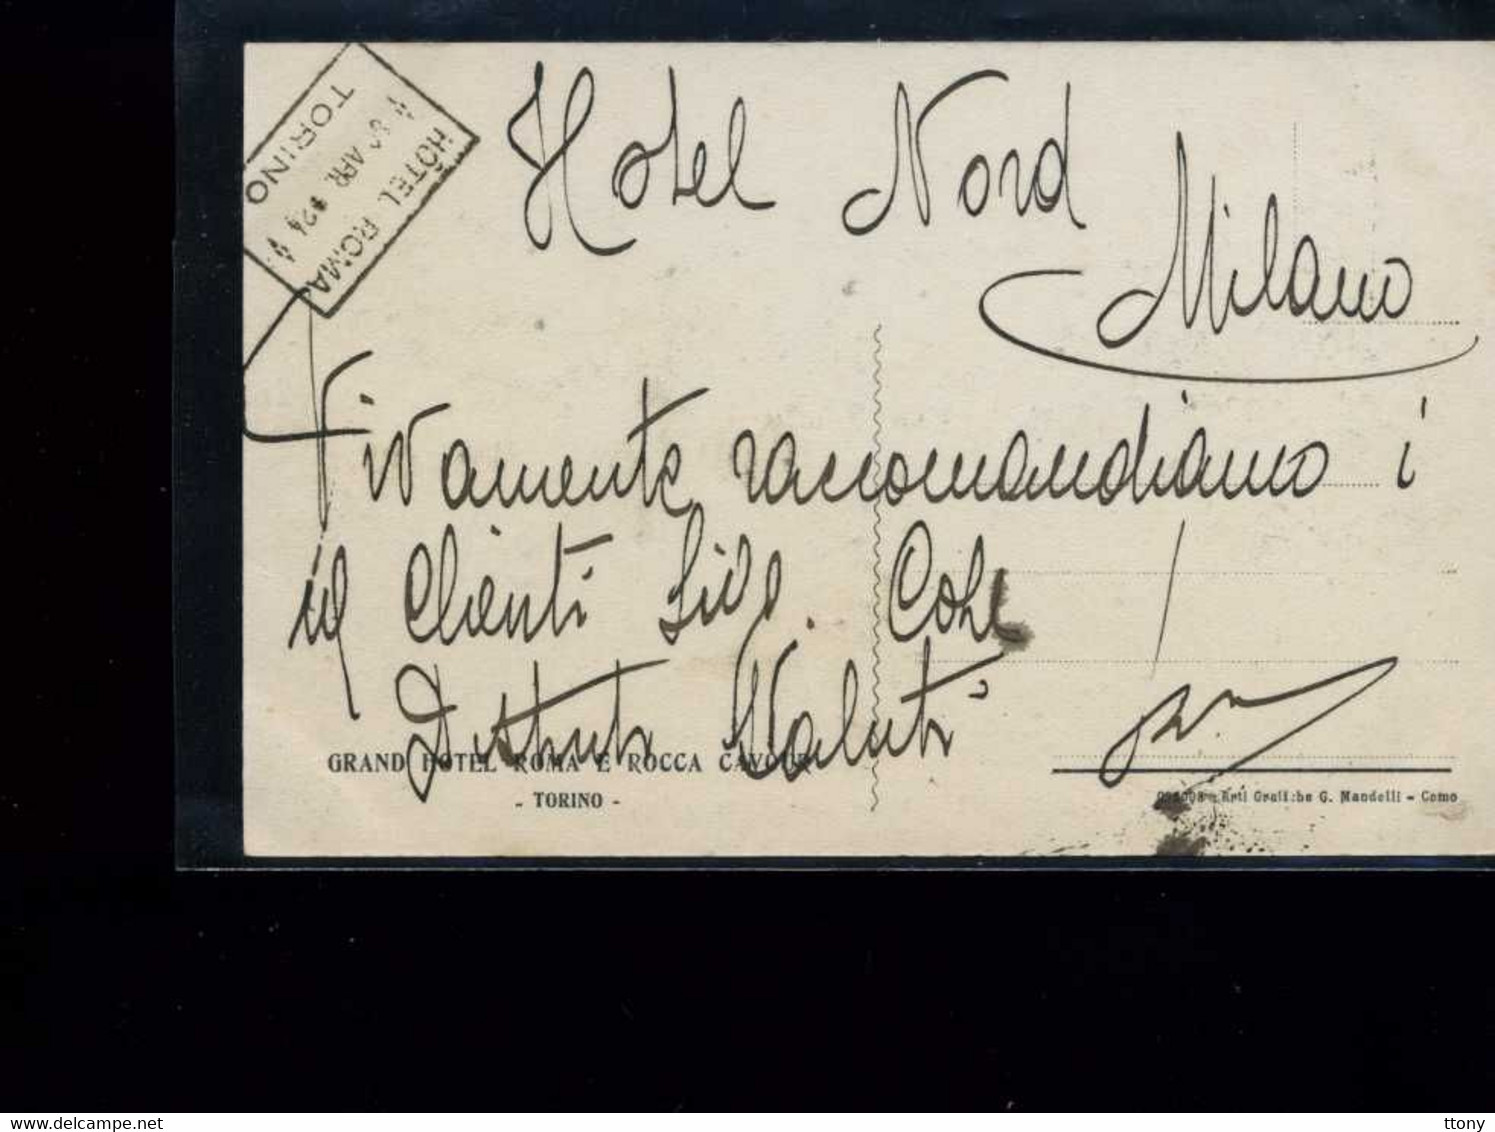 HÔTEL ROMA
APR. 924
TORINO
Hotel Nord
Milano
Vivamente raccomandiamo i
Clienti
Distinti Saluti
GRAND HOTEL ROMA E ROCCA CAVOUR
- TORINO -
Arti Grafiche G. Mandelli - Como
ttony